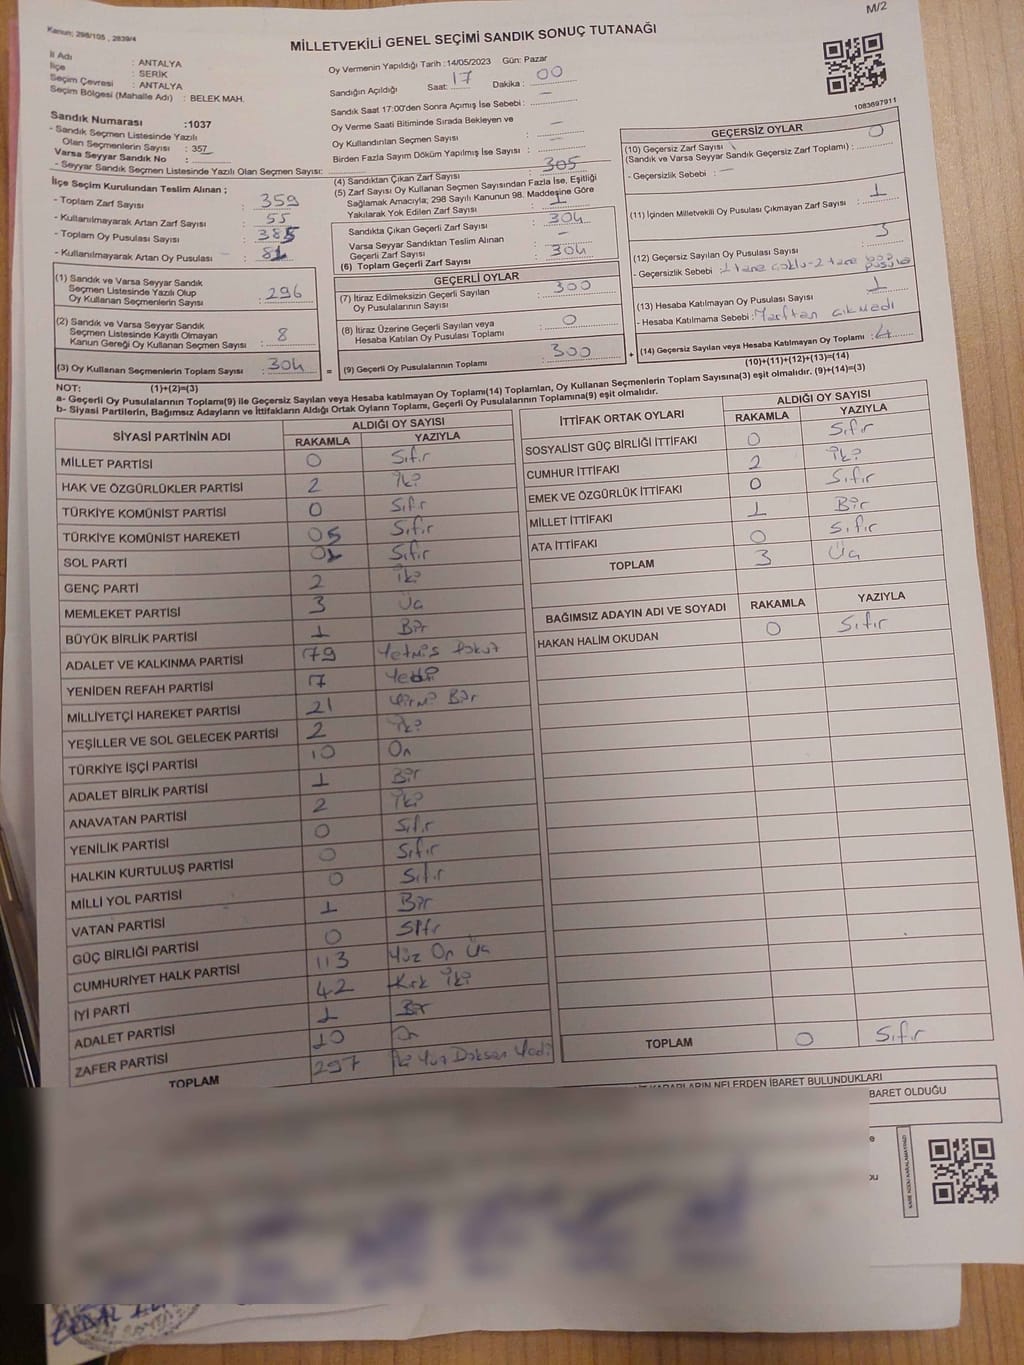 M/2
Kanun; 298/105 , 2839/4
MİLLETVEKİLİ GENEL SEÇİMİ SANDIK SONUÇ TUTANAĞI
İl Adı : ANTALYA
İlçe : SERİK
Seçim Çevresi : ANTALYA
Seçim Bölgesi (Mahalle Adı) : BELEK MAH.
Sandık Numarası :1037
- Sandık Seçmen Listesinde Yazılı
Olan Seçmenlerin Sayısı : 357
Varsa Seyyar Sandık No :
- Seyyar Sandık Seçmen Listesinde Yazılı Olan Seçmen Sayısı:
Oy Vermenin Yapıldığı Tarih :14/05/2023 Gün: Pazar
Sandığın Açıldığı Saat: 17 Dakika : 00
Sandık Saat 17:00'den Sonra Açımış İse Sebebi : —
Oy Verme Saati Bitiminde Sırada Bekleyen ve
Oy Kullandırılan Seçmen Sayısı : —
Birden Fazla Sayım Döküm Yapılmış İse Sayısı : —
1083697911
İlçe Seçim Kurulundan Teslim Alınan ;
- Toplam Zarf Sayısı : 359
- Kullanılmayarak Artan Zarf Sayısı : 55
- Toplam Oy Pusulası Sayısı : 385
- Kullanılmayarak Artan Oy Pusulası : 81
(1) Sandık ve Varsa Seyyar Sandık
Seçmen Listesinde Yazılı Olup
Oy Kullanan Seçmenlerin Sayısı : 296
(2) Sandık ve Varsa Seyyar Sandık
Seçmen Listesinde Kayıtlı Olmayan
Kanun Gereği Oy Kullanan Seçmen Sayısı : 8
(3) Oy Kullanan Seçmenlerin Toplam Sayısı : 304
(4) Sandıktan Çıkan Zarf Sayısı : 305
(5) Zarf Sayısı Oy Kullanan Seçmen Sayısından Fazla İse, Eşitliği
Sağlamak Amacıyla; 298 Sayılı Kanunun 98. Maddesine Göre
Yakılarak Yok Edilen Zarf Sayısı : 1
Sandıkta Çıkan Geçerli Zarf Sayısı : 304
Varsa Seyyar Sandıktan Teslim Alınan
Geçerli Zarf Sayısı : —
(6) Toplam Geçerli Zarf Sayısı : 304
GEÇERLİ OYLAR
(7) İtiraz Edilmeksizin Geçerli Sayılan
Oy Pusulalarının Sayısı : 300
(8) İtiraz Üzerine Geçerli Sayılan veya
Hesaba Katılan Oy Pusulası Toplamı : 0
= (9) Geçerli Oy Pusulalarının Toplamı : 300
GEÇERSİZ OYLAR
(10) Geçersiz Zarf Sayısı
(Sandık ve Varsa Seyyar Sandık Geçersiz Zarf Toplamı) : 0
- Geçersizlik Sebebi : —
(11) İçinden Milletvekili Oy Pusulası Çıkmayan Zarf Sayısı : 1
(12) Geçersiz Sayılan Oy Pusulası Sayısı : 3
- Geçersizlik Sebebi : 1 tane çoklu-2 tane boş pusula
(13) Hesaba Katılmayan Oy Pusulası Sayısı : 1
- Hesaba Katılmama Sebebi : Zarftan çıkmadı
+ (14) Geçersiz Sayılan veya Hesaba Katılmayan Oy Toplamı : 4
(10)+(11)+(12)+(13)=(14)
NOT: (1)+(2)=(3)
a- Geçerli Oy Pusulalarının Toplamı(9) ile Geçersiz Sayılan veya Hesaba katılmayan Oy Toplamı(14) Toplamları, Oy Kullanan Seçmenlerin Toplam Sayısına(3) eşit olmalıdır. (9)+(14)=(3)
b- Siyasi Partilerin, Bağımsız Adayların ve İttifakların Aldığı Ortak Oyların Toplamı, Geçerli Oy Pusulalarının Toplamına(9) eşit olmalıdır.
SİYASİ PARTİNİN ADI ALDIĞI OY SAYISI
RAKAMLA YAZIYLA
MİLLET PARTİSİ 0 Sıfır
HAK VE ÖZGÜRLÜKLER PARTİSİ 2 İki
TÜRKİYE KOMÜNİST PARTİSİ 0 Sıfır
TÜRKİYE KOMÜNİST HAREKETİ 0 Sıfır
SOL PARTİ 0 Sıfır
GENÇ PARTİ 2 İki
MEMLEKET PARTİSİ 3 Üç
BÜYÜK BİRLİK PARTİSİ 1 Bir
ADALET VE KALKINMA PARTİSİ 79 Yetmiş Dokuz
YENİDEN REFAH PARTİSİ 7 Yedi
MİLLİYETÇİ HAREKET PARTİSİ 21 Yirmi Bir
YEŞİLLER VE SOL GELECEK PARTİSİ 2 İki
TÜRKİYE İŞÇİ PARTİSİ 10 On
ADALET BİRLİK PARTİSİ 1 Bir
ANAVATAN PARTİSİ 2 İki
YENİLİK PARTİSİ 0 Sıfır
HALKIN KURTULUŞ PARTİSİ 0 Sıfır
MİLLİ YOL PARTİSİ 0 Sıfır
VATAN PARTİSİ 1 Bir
GÜÇ BİRLİĞİ PARTİSİ 0 Sıfır
CUMHURİYET HALK PARTİSİ 113 Yüz On Üç
İYİ PARTİ 42 Kırk İki
ADALET PARTİSİ 1 Bir
ZAFER PARTİSİ 10 On
TOPLAM 297 İki Yüz Doksan Yedi
İTTİFAK ORTAK OYLARI ALDIĞI OY SAYISI
RAKAMLA YAZIYLA
SOSYALİST GÜÇ BİRLİĞİ İTTİFAKI 0 Sıfır
CUMHUR İTTİFAKI 2 İki
EMEK VE ÖZGÜRLÜK İTTİFAKI 0 Sıfır
MİLLET İTTİFAKI 1 Bir
ATA İTTİFAKI 0 Sıfır
TOPLAM 3 Üç
BAĞIMSIZ ADAYIN ADI VE SOYADI RAKAMLA YAZIYLA
HAKAN HALİM OKUDAN 0 Sıfır
TOPLAM 0 Sıfır
KARARLARIN NELERDEN İBARET BULUNDUKLARI
İBARET OLDUĞU
KARE KODU KARALAMAYINIZ!